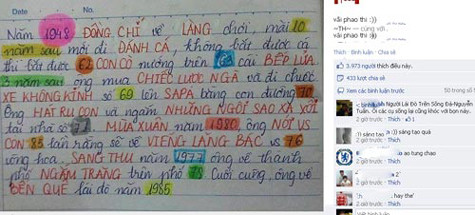 Năm 1948 ĐỒNG CHÍ về LÀNG chơi, mãi 10
năm sau mới đi ĐÁNH CÁ, không bắt được cá
thì bắt được 62 CON CÒ nướng trên 63 cái BẾP LỬA
3 năm sau ông mua CHIẾC LƯỢC NGÀ và đi chiếc
XE KHÔNG KÍNH số 69 lên SAPA bằng con đường 70
Ông HÁT RU CON và ngắm NHỮNG NGÔI SAO XA XÔI
tại nhà số 71. MÙA XUÂN năm 1980, ÔNG NÓI VS
CON 85 tấn rằng sẽ về VIẾNG LĂNG BÁC vs 76
vòng hoa. SANG THU năm 1977 ông về thành
phố NGẮM TRĂNG trên phố 78 Cuối cùng, ông về
BẾN QUÊ lái đò năm 1985
vãi phao thi :))
cùng với
vãi phao thi :))
Thích · Bình luận · Chia sẻ
3.973 người thích điều này.
433 lượt chia sẻ
Xem các bình luận trước
50 trong số
Người Lái Đò Trên Sông Đà-Nguyễn
Tuân. Ôi các cụ sống lại cũng khóc với bọn này.
2 giờ trước · Thích
:)) sáng tạo quá
2 giờ trước · Thích
ảo tung chao
2 giờ trước · Thích
2 giờ trước · Thích
hay thế'
2 giờ trước · Thích